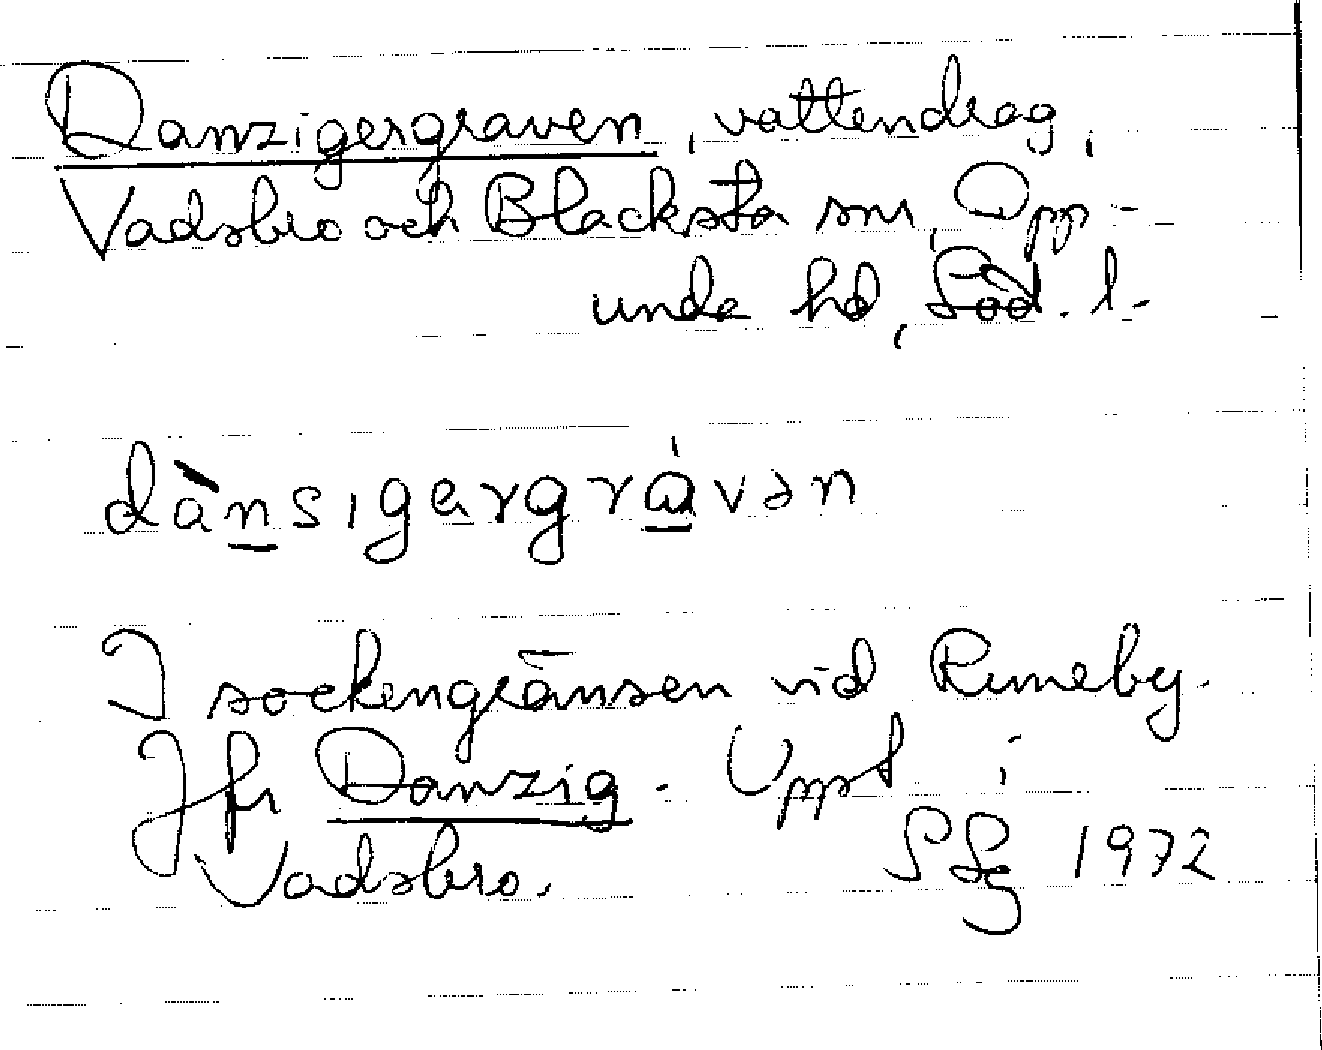 Danzigergraven, vattendrag,
Vadsbro och Blacksta snr, Opp-
unda hd, Söd. l.
dànsigərgrávən
I sockengränsen vid Rumeby.
Jfr Danzig. Uppt i
Vadsbro. SLg 1972